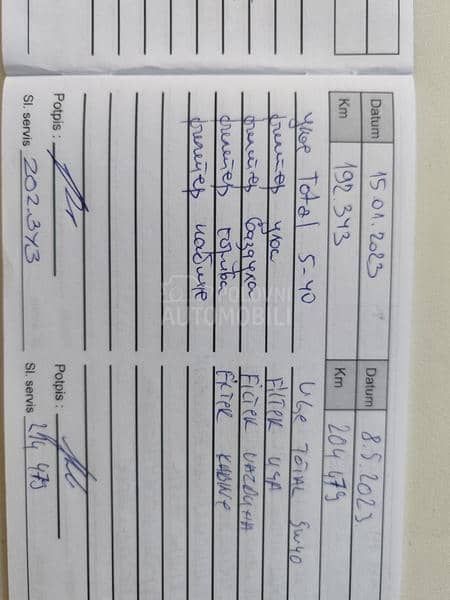 Datum 15.01.2023
Km 192.343
уље Total 5-40
филтер уља
филтер ваздуха
филтер горива
филтер кабине
Potpis :
Sl. servis 202.343
Datum 8.9.2023
Km 204 479
ULJE TOTAL 5W40
FILTER ULJA
FILTER VAZDUHA
FILTER KABINE
Potpis :
Sl. servis 214 479
POLOVNI
AUTOMOBILI